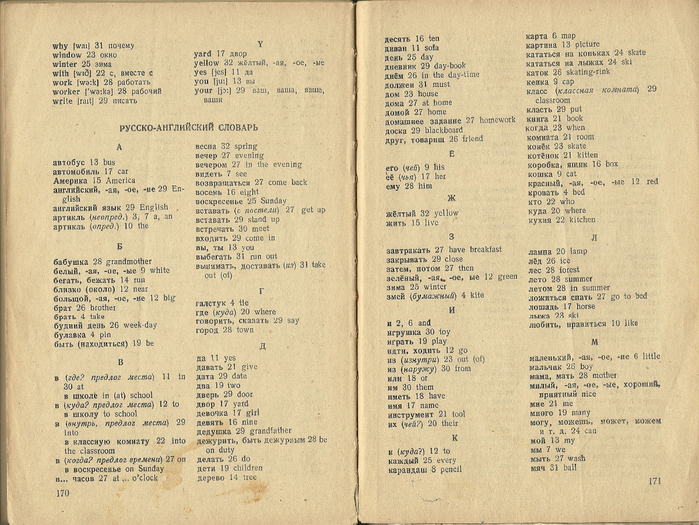 why [wai] 31 почему
window 23 окно
winter 25 зима
with [wið] 22 с, вместе с
work [wə:k] 28 работать
worker ['wə:kə] 28 рабочий
write [rait] 29 писать
Y
yard 17 двор
yellow 32 жёлтый, -ая, -ое, -ые
yes [jes] 11 да
you [ju:] 13 вы
your [jɔ:] 29 ваш, ваша, ваше,
ваши
РУССКО-АНГЛИЙСКИЙ СЛОВАРЬ
А
автобус 13 bus
автомобиль 17 car
Америка 15 America
английский, -ая, -ое, -ие 29 En-
glish
английский язык 29 English
артикль (неопред.) 3, 7 a, an
артикль (опред.) 10 the
Б
бабушка 28 grandmother
белый, -ая, -ое, -ые 9 white
бегать, бежать 14 run
близко (около) 12 near
большой, -ая, -ое, -ие 12 big
брат 26 brother
брать 4 take
будний день 26 week-day
булавка 4 pin
быть (находиться) 19 be
В
в (где? предлог места) 11 in
30 at
в школе in (at) school
в (куда? предлог места) 12 to
в школу to school
в (внутрь, предлог места) 29
into
в классную комнату 22 into
the classroom
в (когда? предлог времени) 27 on
в воскресенье on Sunday
в... часов 27 at... o'clock
170
весна 32 spring
вечер 27 evening
вечером 27 in the evening
видеть 7 see
возвращаться 27 come back
восемь 16 eight
воскресенье 25 Sunday
вставать (с постели) 27 get up
вставать 29 stand up
встречать 30 meet
входить 29 come in
вы, ты 13 you
выбегать 31 run out
вынимать, доставать (из) 31 take
out (of)
Г
галстук 4 tie
где (куда) 20 where
говорить, сказать 29 say
город 28 town
Д
да 11 yes
давать 21 give
дата 29 date
два 19 two
дверь 29 door
двор 17 yard
девочка 17 girl
девять 16 nine
дедушка 29 grandfather
дежурить, быть дежурным 28 be
on duty
делать 26 do
дети 19 children
дерево 14 tree
десять 16 ten
диван 11 sofa
день 25 day
дневник 29 day-book
днём 26 in the day-time
должен 31 must
дом 23 house
дома 27 at home
домой 27 home
домашнее задание 27 homework
доска 29 blackboard
друг, товарищ 26 friend
Е
его (чей) 9 his
её (чья) 17 her
ему 28 him
Ж
жёлтый 32 yellow
жить 15 live
З
завтракать 27 have breakfast
закрывать 29 close
затем, потом 27 then
зелёный, -ая, -ое, -ые 12 green
зима 25 winter
змей (бумажный) 4 kite
И
и 2, 6 and
игрушка 30 toy
играть 19 play
идти, ходить 12 go
из (изнутри) 23 out (of)
из (наружу) 30 from
или 18 or
им 30 them
иметь 18 have
имя 17 name
инструмент 21 tool
их (чей?) 20 their
К
к (куда?) 12 to
каждый 25 every
карандаш 8 pencil
карта 6 map
картина 13 picture
кататься на коньках 24 skate
кататься на лыжах 24 ski
каток 26 skating-rink
кепка 9 cap
класс (классная комната) 29
classroom
класть 29 put
книга 21 book
когда 23 when
комната 21 room
конёк 23 skate
котёнок 21 kitten
коробка, ящик 16 box
кошка 9 cat
красный, -ая, -ое, -ые 12 red
кровать 4 bed
кто 22 who
куда 20 where
кухня 22 kitchen
Л
лампа 20 lamp
лёд 26 ice
лес 28 forest
лето 28 summer
летом 28 in summer
ложиться спать 27 go to bed
лошадь 17 horse
лыжа 23 ski
любить, нравиться 10 like
М
маленький, -ая, -ое, -ие 6 little
мальчик 26 boy
мама, мать 28 mother
милый, -ая, -ое, -ые, хороший,
приятный nice
мне 21 me
много 19 many
могу, можешь, может, можем
и т. д. 24 can
мой 13 my
мы 7 we
мыть 27 wash
мяч 31 ball
171